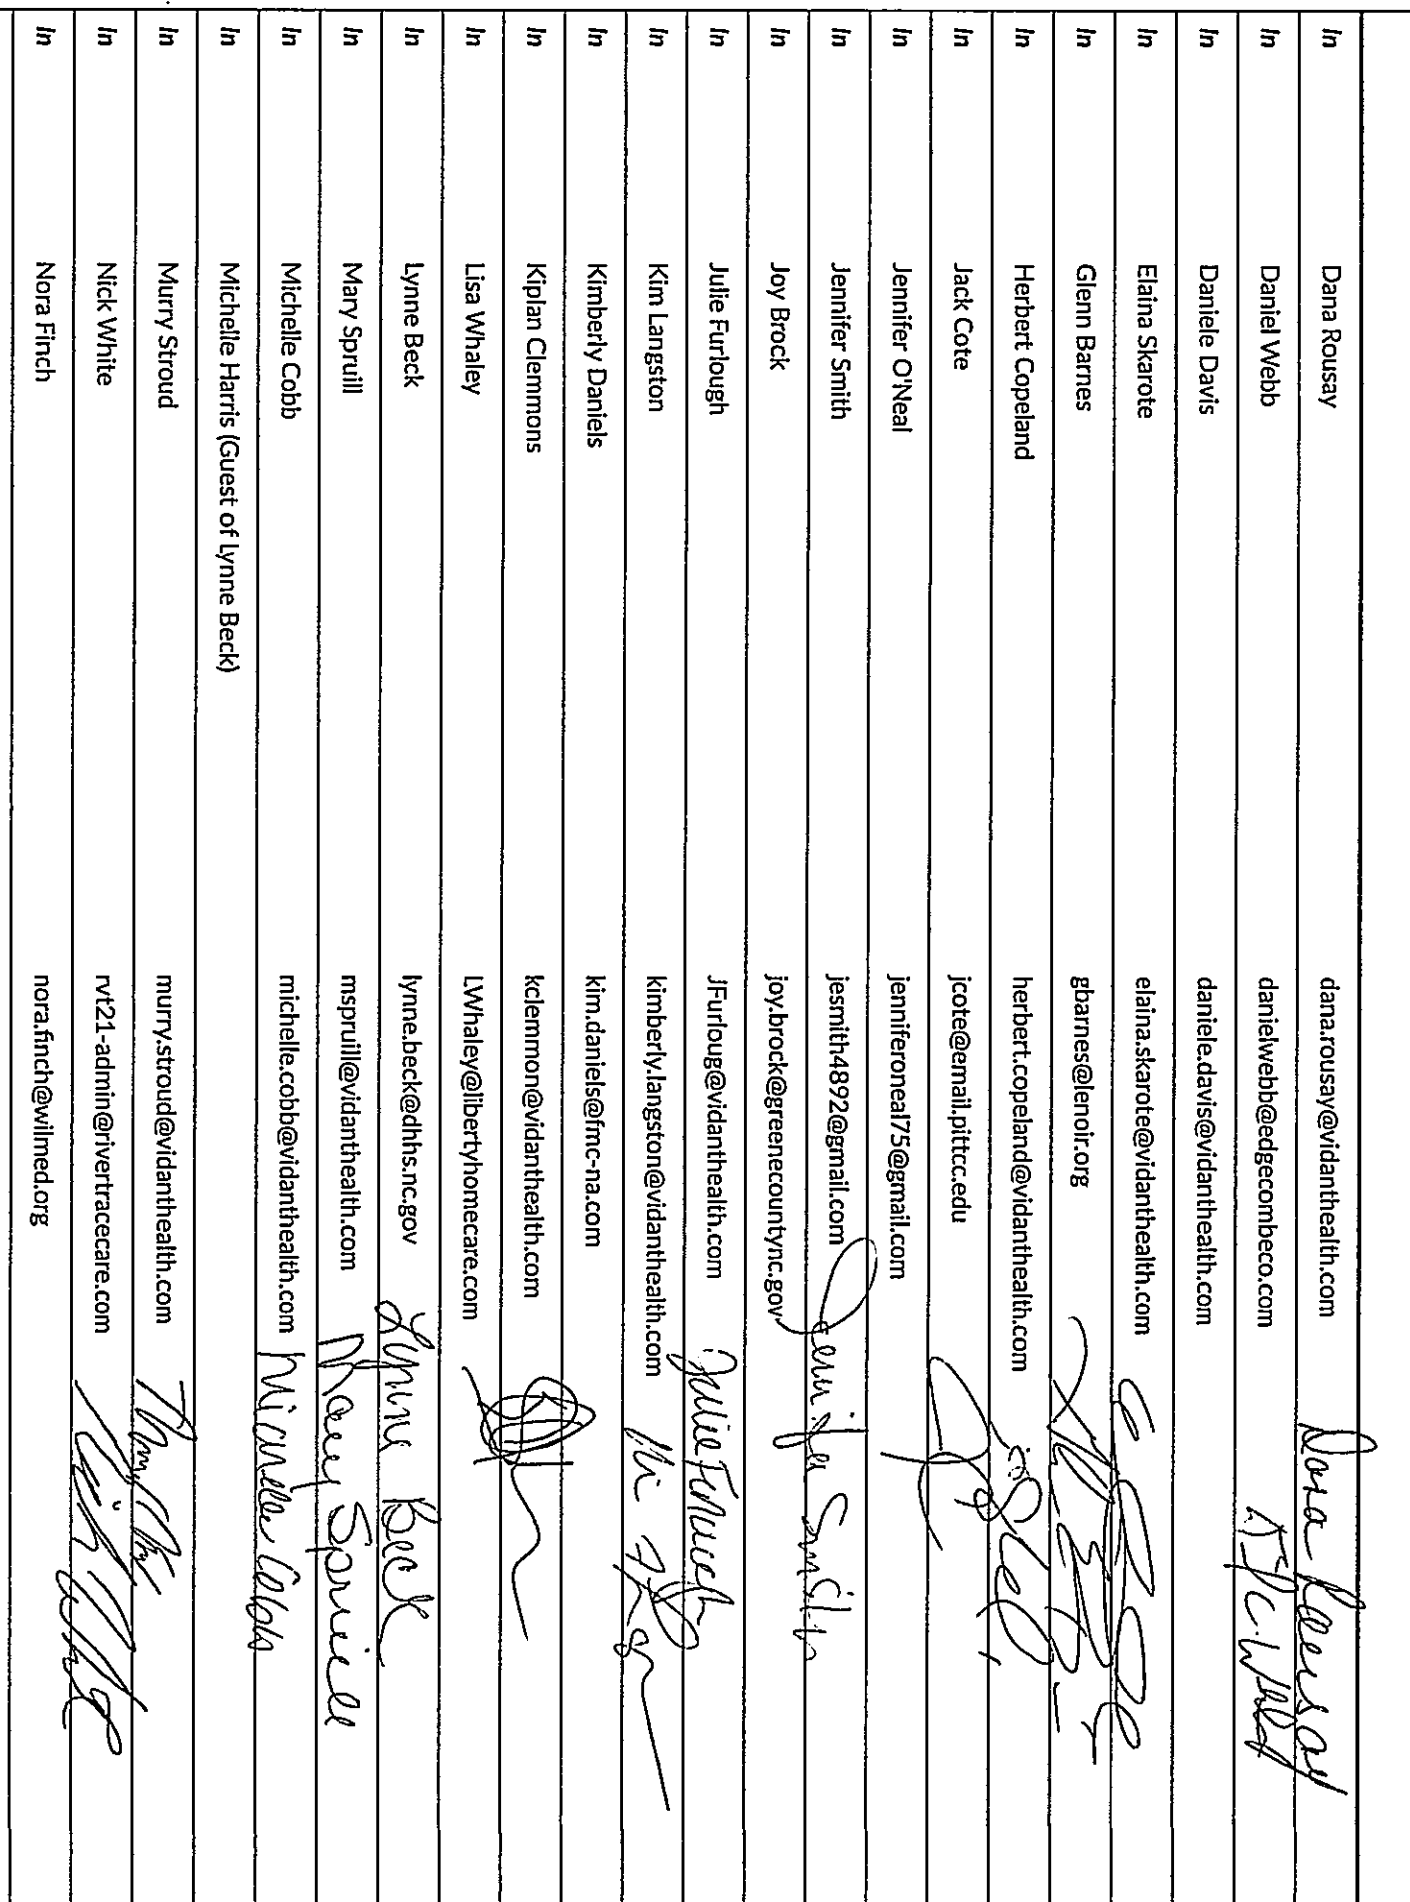 In Dana Rousay dana.rousay@vidanthealth.com Dana Rousay
In Daniel Webb danielwebb@edgecombeco.com C. Webb
In Daniele Davis daniele.davis@vidanthealth.com
In Elaina Skarote elaina.skarote@vidanthealth.com
In Glenn Barnes gbarnes@lenoir.org
In Herbert Copeland herbert.copeland@vidanthealth.com
In Jack Cote jcote@email.pittcc.edu
In Jennifer O'Neal jenniferoneal75@gmail.com
In Jennifer Smith jesmith4892@gmail.com Jennifer Smith
In Joy Brock joy.brock@greenecountync.gov
In Julie Furlough JFurloug@vidanthealth.com Julie Furlough
In Kim Langston kimberly.langston@vidanthealth.com
In Kimberly Daniels kim.daniels@fmc-na.com
In Kiplan Clemmons kclemmon@vidanthealth.com
In Lisa Whaley LWhaley@libertyhomecare.com
In Lynne Beck lynne.beck@dhhs.nc.gov Lynne Beck
In Mary Spruill mspruill@vidanthealth.com Mary Spruill
In Michelle Cobb michelle.cobb@vidanthealth.com Michelle Cobb
In Michelle Harris (Guest of Lynne Beck)
In Murry Stroud murry.stroud@vidanthealth.com
In Nick White rvt21-admin@rivertracecare.com Nick White
In Nora Finch nora.finch@wilmed.org